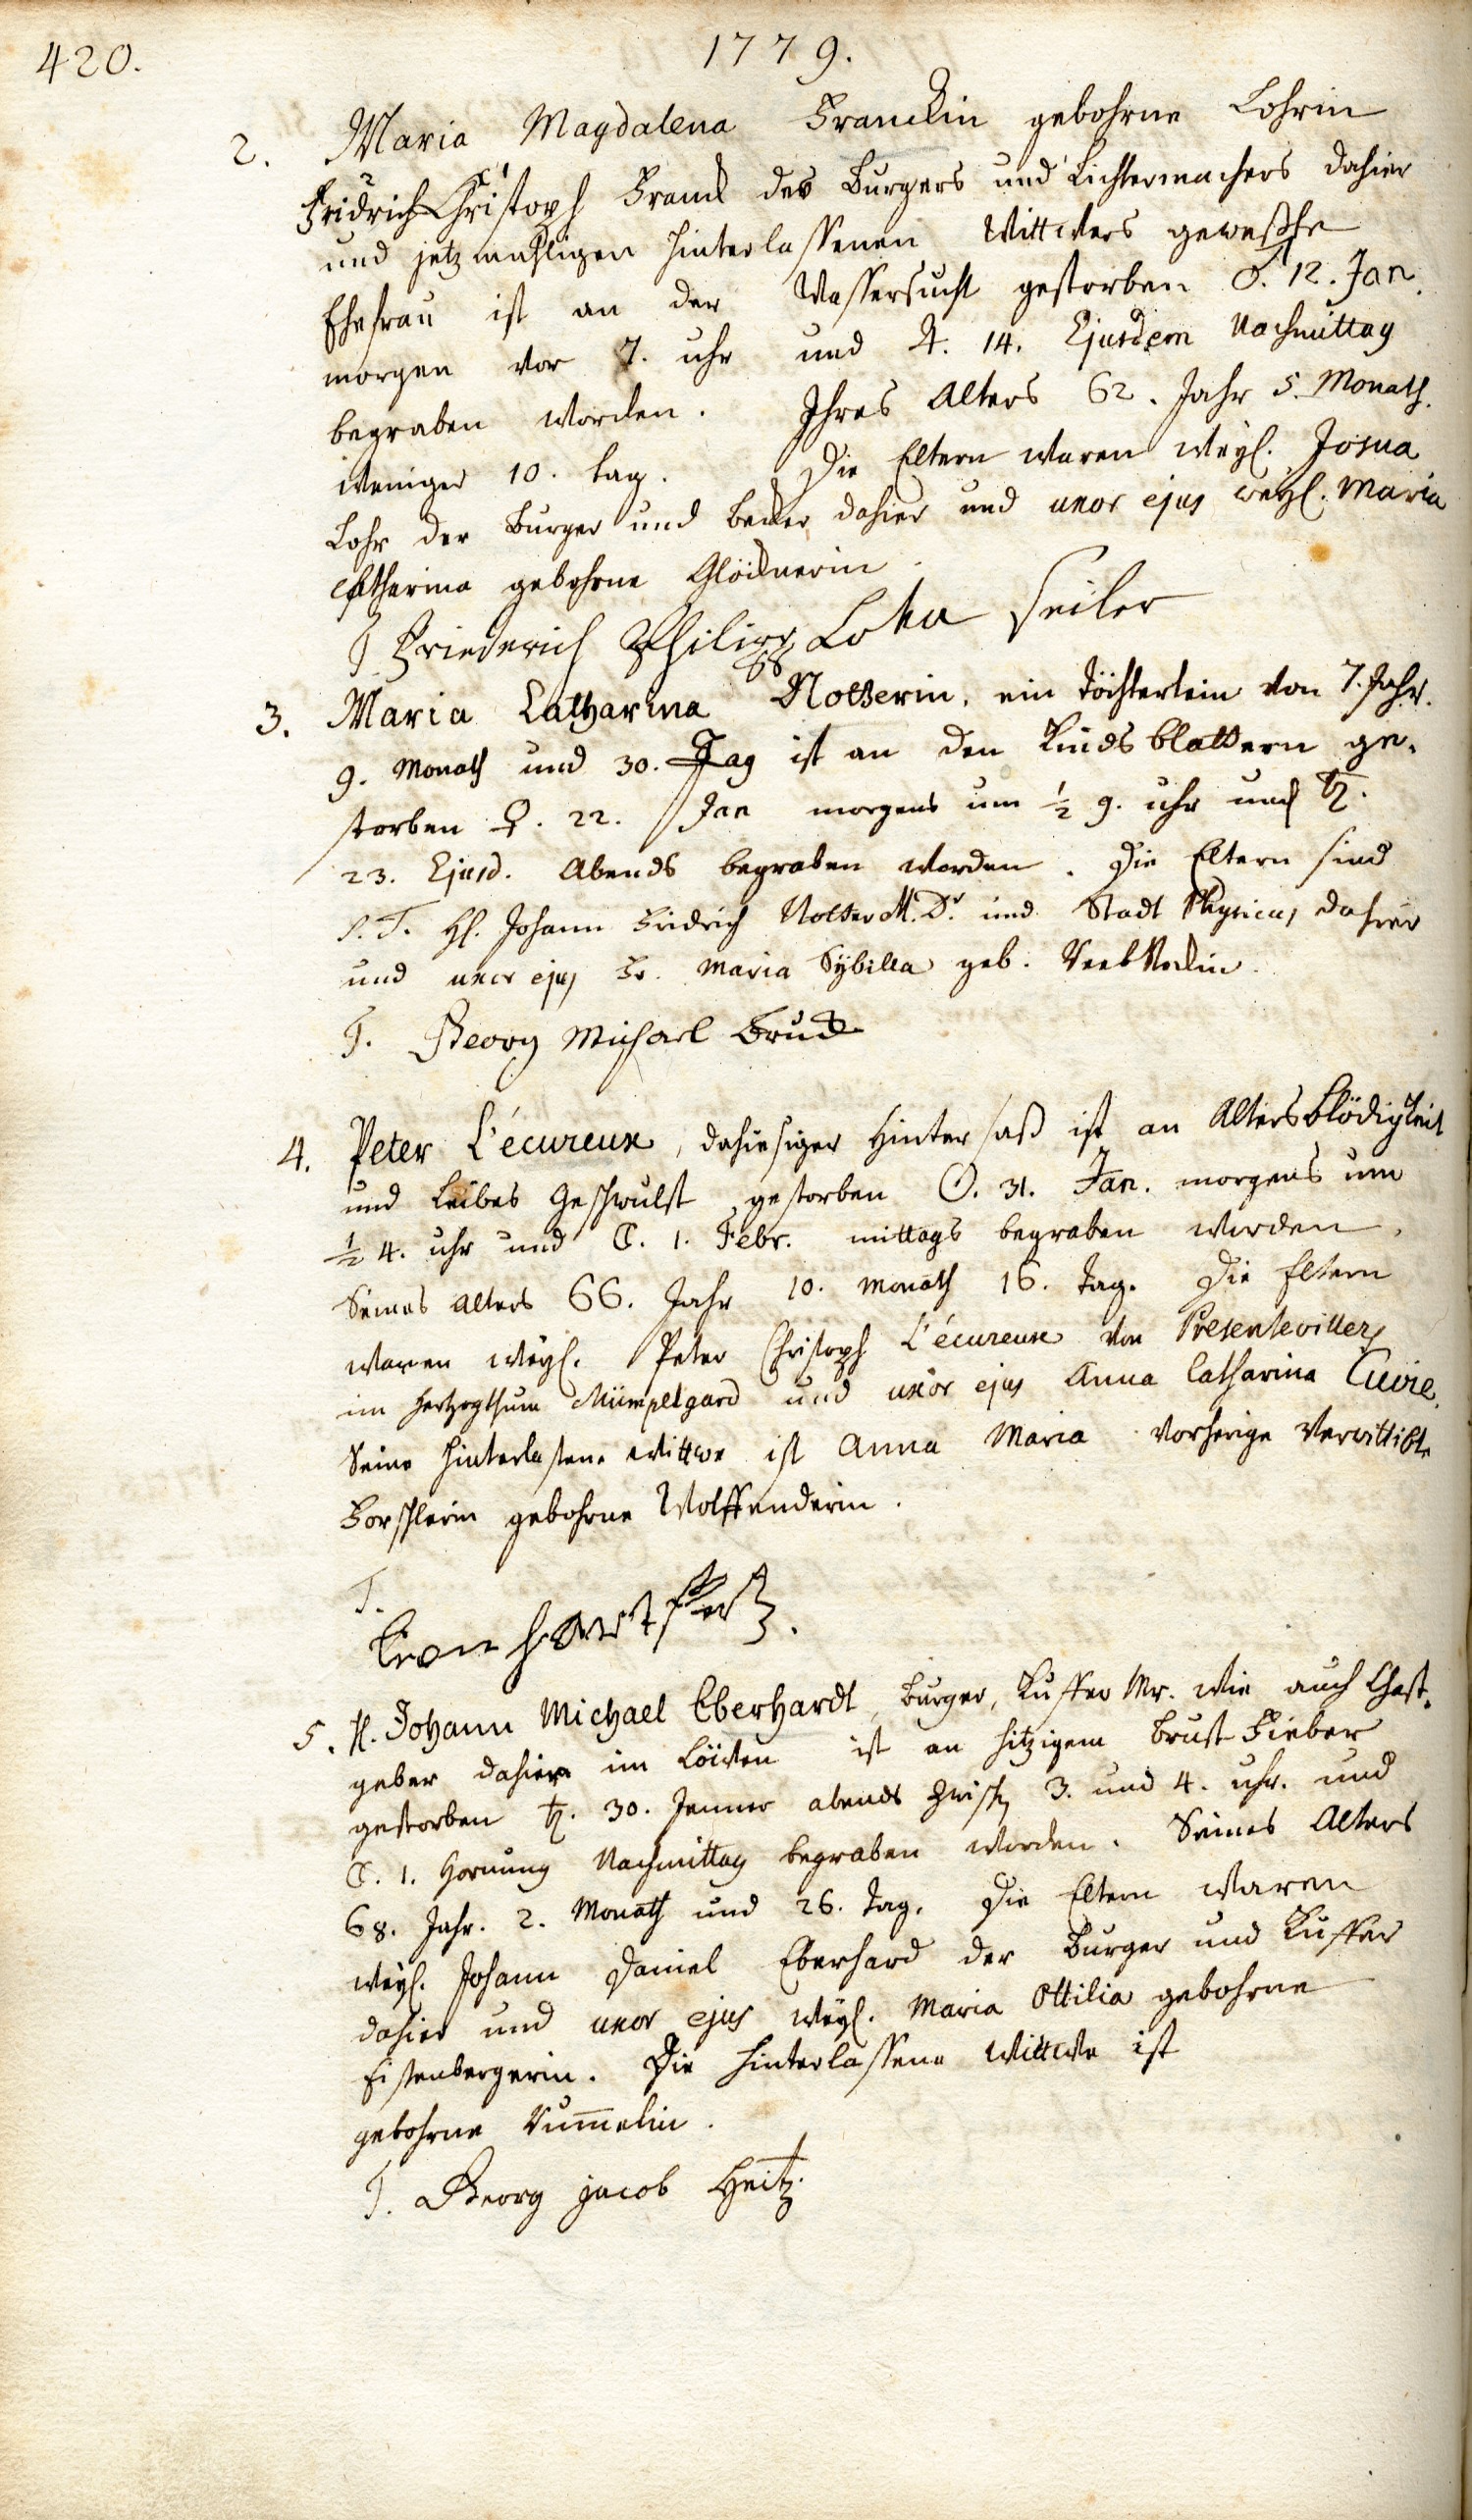 420.
1779.
2. Maria Magdalena Franckin gebohrne Lohrin
Fridrich Christoph Franck des Burgers und Lichtermachers dahier
und jetzmahligen hinterlassenen Wittwers geweßte
Ehefrau ist an der Wassersucht gestorben ♂. 12. Jan.
morgen vor 7. uhr und ♃. 14. Ejusdem Nachmittag
begraben worden. Ihres Alters 62. Jahr 5. Monath.
weniger 10. tag. Die Eltern waren weyl. Josua
Lohr der Burger und Becker dahier und uxor ejus weyl. Maria
Catharina gebohrne Glöcknerin.
T Friederich Philipp Lohr Seiler
3. Maria Catharina Nolterin, ein Töchterlein von 7. Jahr.
9. Monath und 30. Tag ist an den Kinds blattern ge-
storben ♀. 22. Jan morgens um ½ 9. uhr und ♄.
23. Ejusd. Abends begraben worden. Die Eltern sind
S. T. H. Johann Fridrich Nolter M. Dr. und Stadt Physicus dahier
und uxor ejus Fr. Maria Sybilla geb.
T. Georg Michael Bruck
4. Peter L'écureux, dahiesiger Hintersaß ist an Altersblödigkeit
und Leibes Geschwulst gestorben ☉. 31. Jan. morgens um
½ 4. uhr und ☾. 1. Febr. mittags begraben worden.
Seines Alters 66. Jahr 10. Monath 16. Tag. Die Eltern
waren weyl. Peter Christoph L'écureux von Presentevillers
im Hertzogthum Mümpelgard und uxor ejus Anna Catharina Cuvie.
Seine hinterlassene Wittwe ist Anna Maria vorherige Verwittibte
Forschlerin gebohrne Wolffenderin.
T.
5. H. Johann Michael Eberhardt, Burger, Kuffer Mr. wie auch Gast-
geber dahier im Löwen ist an hitzigem Brust Fieber
gestorben ♄. 30. Jenner abends zwisch. 3. und 4. uhr. und
☾. 1. Hornung Nachmittag begraben worden. Seines Alters
68. Jahr. 2. Monath und 26. Tag. Die Eltern waren
weyl. Johann Daniel Eberhard der Burger und Kuffer
dahier und uxor ejus weyl. Maria Ottilia gebohrne
Eisenbergerin. Die hinterlassene Wittwe ist
gebohrne Kum̅elin.
T. Georg jacob Heitz